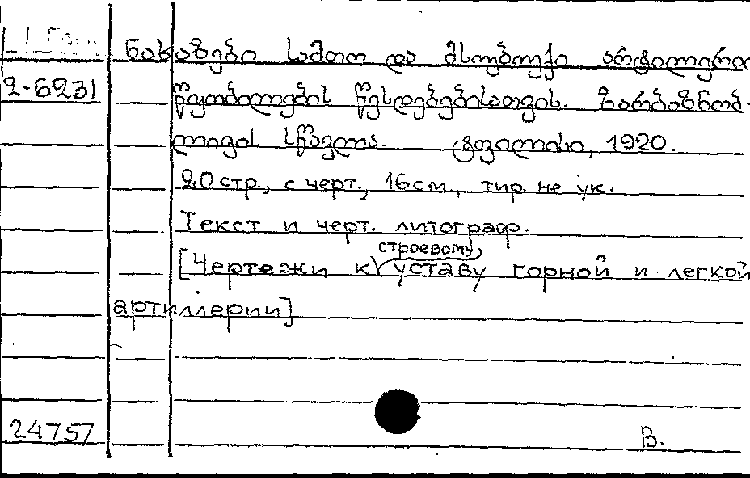 ნახაზები სამთო და მსუბუქი არტილერი
2-6231 წყობილების წესდებებისათვის. ზარბაზნობ-
ლივი სწავლა. ტფილისი, 1920.
20 стр., с черт., 16 см., тир. не ук.
Текст и черт. литограф.
[Чертежи к строевому уставу горной и легкой
артиллерии]
24757 В.